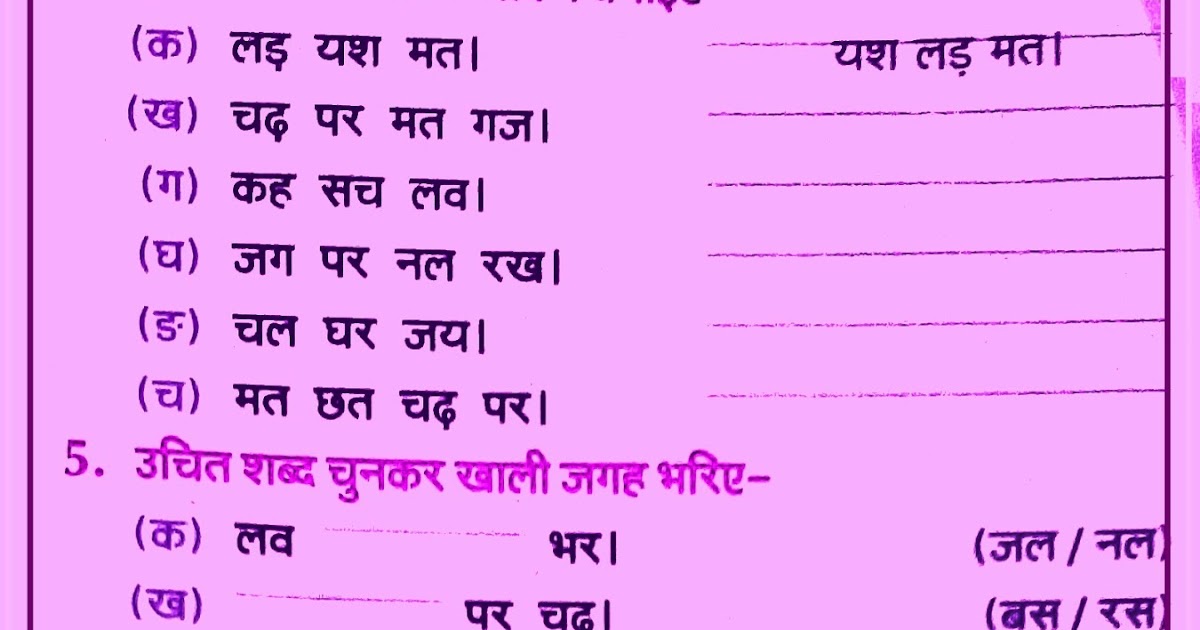 (क) लड़ यश मत। यश लड़ मत।
(ख) चढ़ पर मत गज।
(ग) कह सच लव।
(घ) जग पर नल रख।
(ङ) चल घर जय।
(च) मत छत चढ़ पर।
5. उचित शब्द चुनकर खाली जगह भरिए–
(क) लव भर। (जल / नल)
(ख) पर चढ़। (बस / रस)